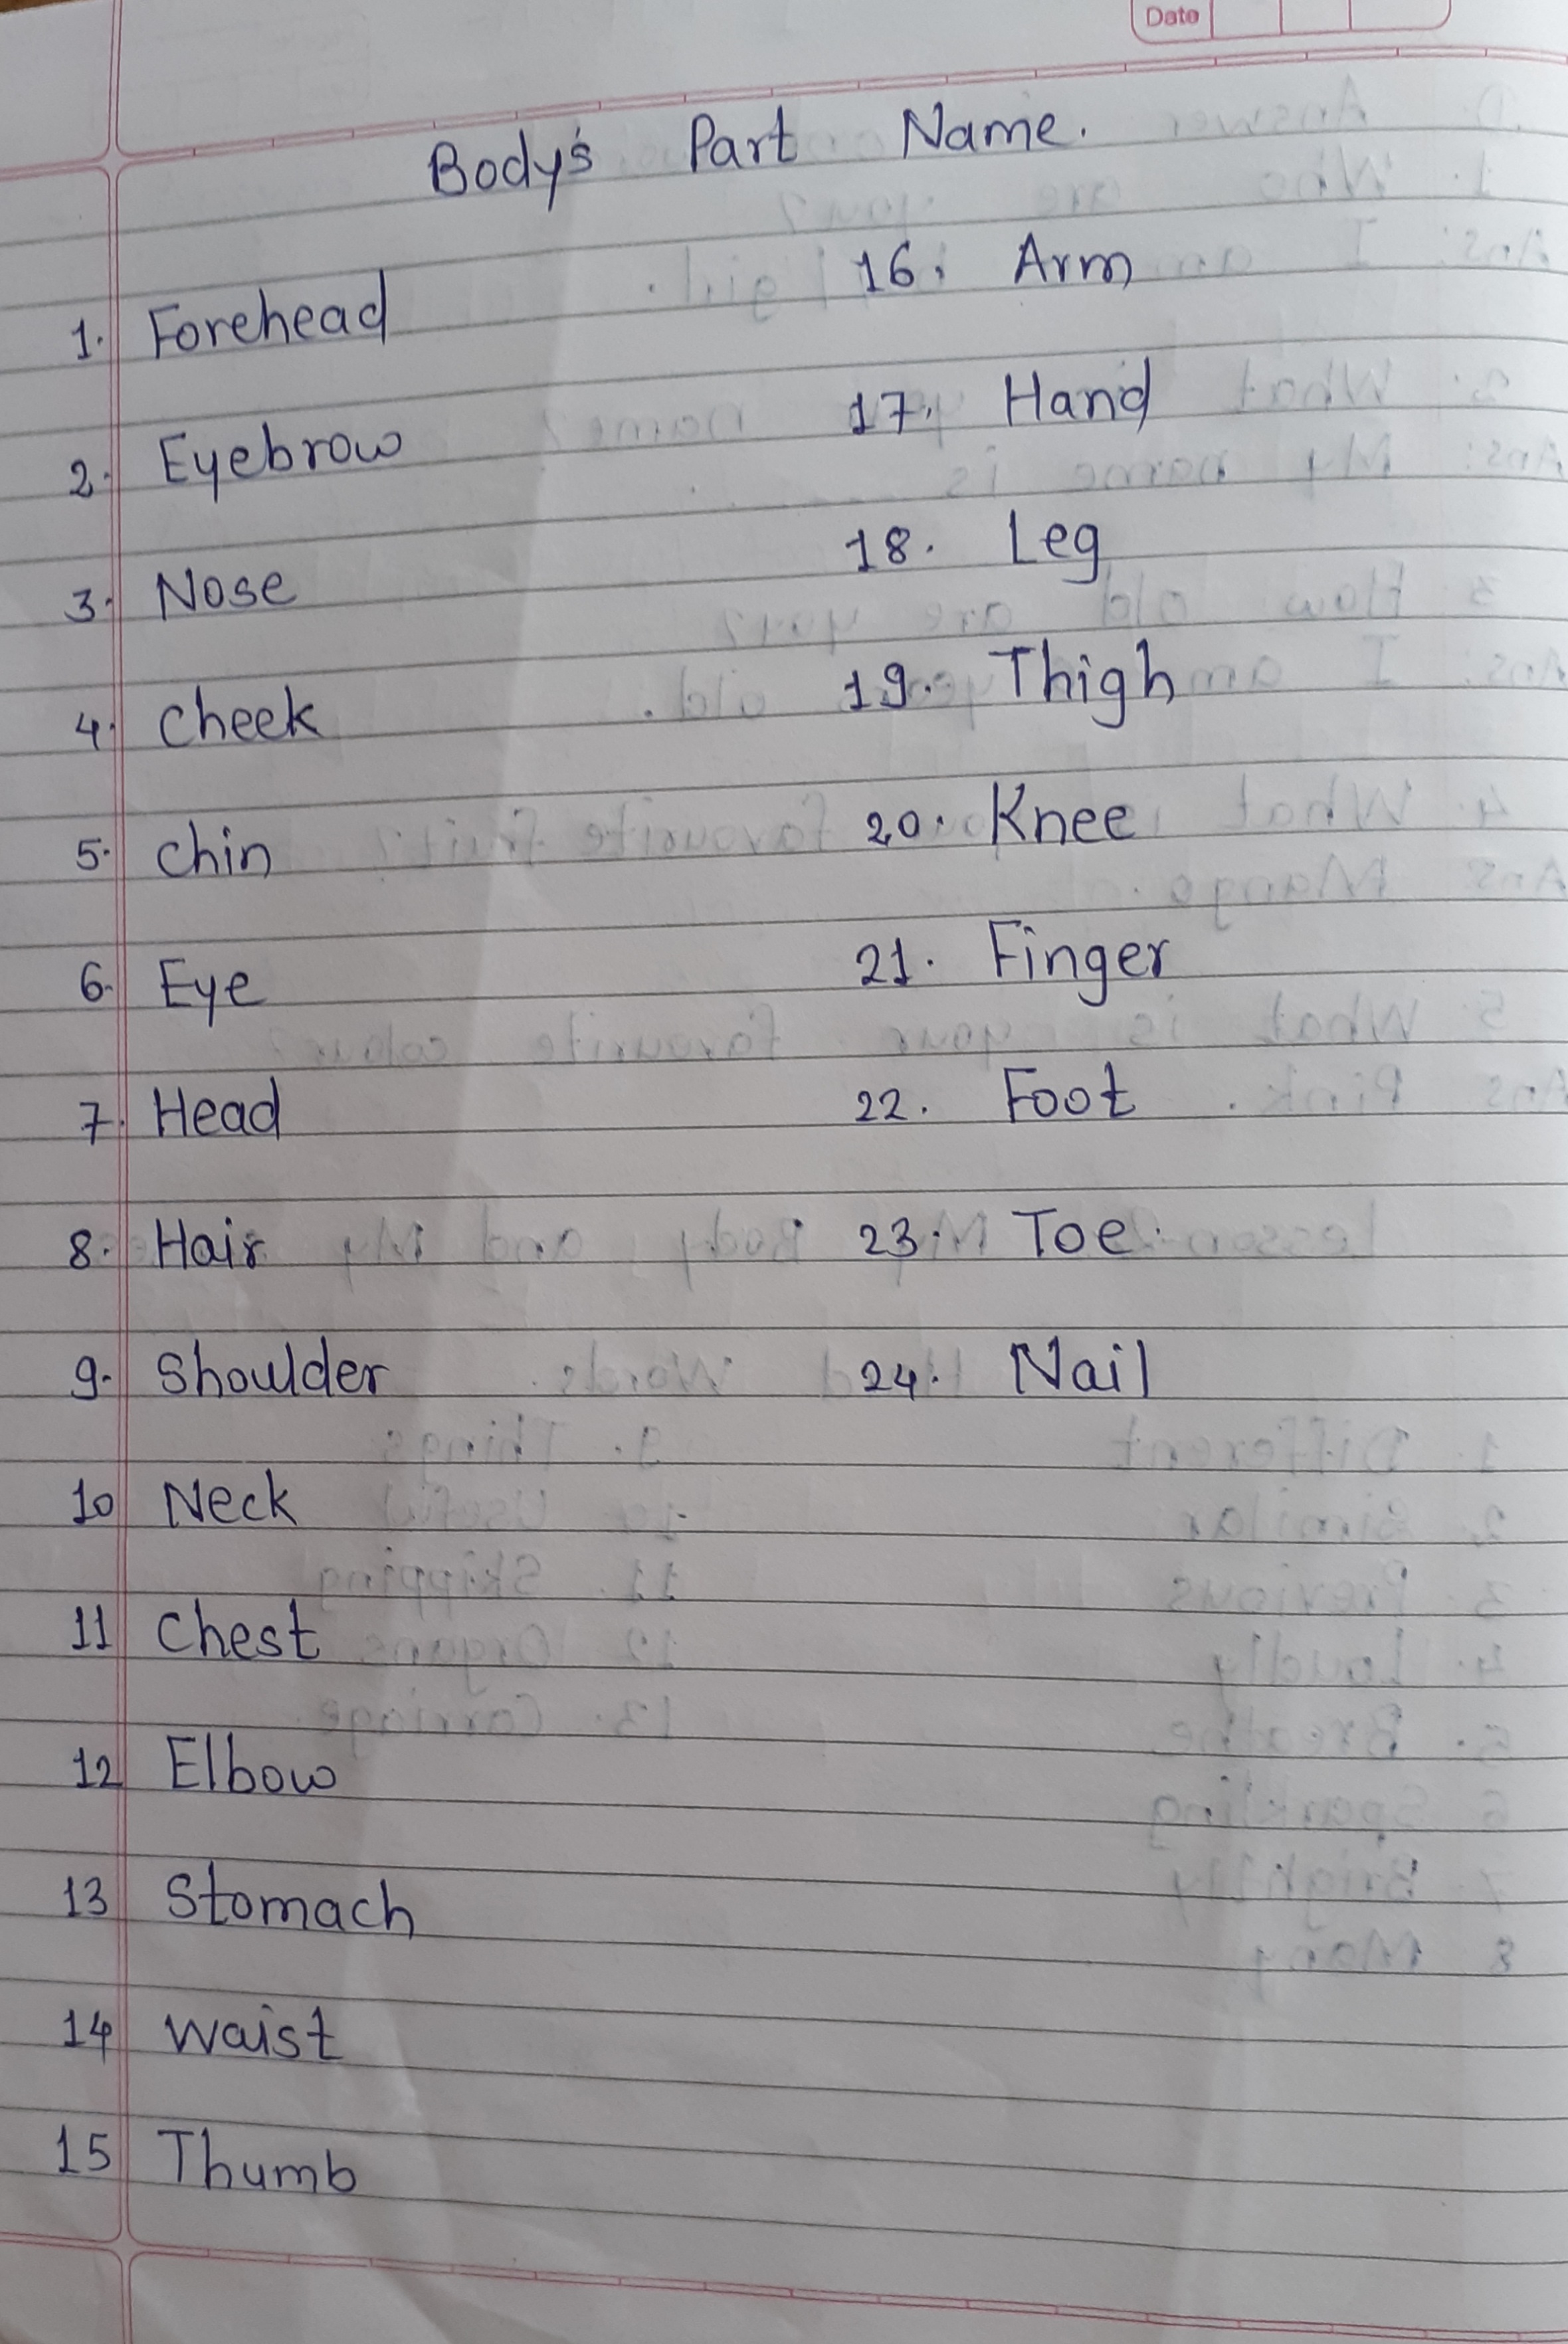 Date
Body's Part Name.
1. Forehead
2. Eyebrow
3. Nose
4. Cheek
5. Chin
6. Eye
7. Head
8. Hair
9. Shoulder
10 Neck
11 Chest
12 Elbow
13 Stomach
14 Waist
15 Thumb
16. Arm
17. Hand
18. Leg
19. Thigh
20. Knee
21. Finger
22. Foot
23. Toe.
24. Nail